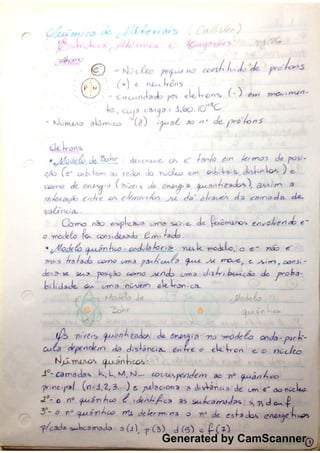 Química de Materiais (Callister)
Estrutura Atômica e Ligações pg 26
átomo
- Núcleo pequeno constituído de prótons
(+) e neutrons
- circundado por eletrons (-) em movimen-
to, cuja carga: 1,60.10⁻¹⁹C
- Número atômico (Z) igual ao nº de prótons
P N
e
Eletrons
• Modelo de Bohr descreve os e⁻ tanto em termos de posi-
ção (e⁻ orbitam ao redor do núcleo em orbitais distintos) e
como de energia (níveis de energia quantizados), assim a
interação entre os elementos se da através da camada de
valência.
Como não explicava uma série de fenômenos envolvendo e⁻
o modelo foi considerado limitado.
• Modelo quântico-ondulatório neste modelo, o e⁻ não é
mais tratado como uma partícula que se move, e sim, consi-
dera-se sua posição como sendo uma distribuição de proba-
bilidade ou uma nuvem eletronica.
Modelo de
Bohr
Modelo
quântico
Os níveis quantizados de energia no modelo onda-partí-
cula dependem da distância entre o eletron e o núcleo
Números quânticos:
1º- camadas K, L, M, N... correspondem ao nº quântico
principal (n:1,2,3...) e relaciona a distância de um e⁻ ao núcleo
2º- o nº quântico l identifica as subcamadas s, p, d ou f
3º- o nº quântico ml determina o nº de estados energéticos
p/cada subcamada: s (1), p (3), d (5) e f (7)
Generated by CamScanner